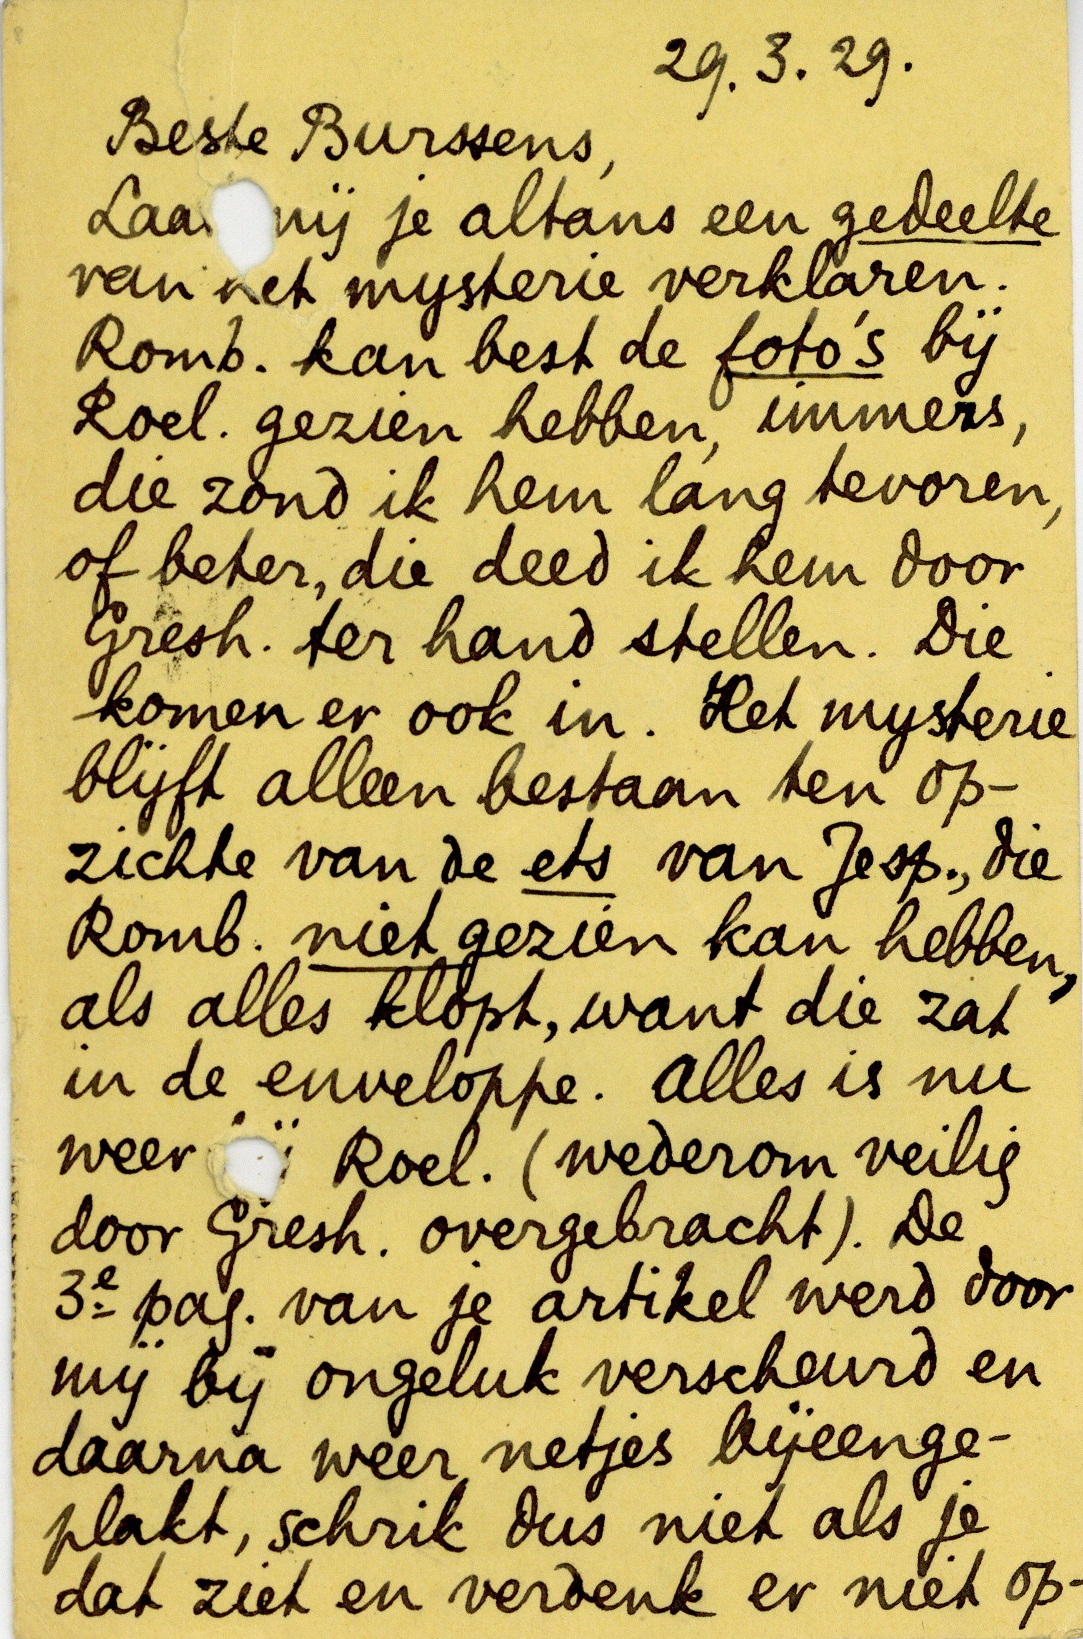 29. 3. 29.
Beste Burssens,
Laa mij je altans een gedeelte
van het mysterie verklaren.
Romb. kan best de foto's bij
Roel. gezien hebben, immers,
die zond ik hem lang tevoren,
of beter, die deed ik hem door
Gresh. ter hand stellen. Die
komen er ook in. Het mysterie
blijft alleen bestaan ten op-
zichte van de ets van Jesp., die
Romb. niet gezien kan hebben,
als alles klopt, want die zat
in de enveloppe. Alles is nu
weer Roel. (wederom veilig
door Gresh. overgebracht). De
3e pag. van je artikel werd door
mij bij ongeluk verscheurd en
daarna weer netjes bijeenge-
plakt, schrik dus niet als je
dat ziet en verdenk er niet op-